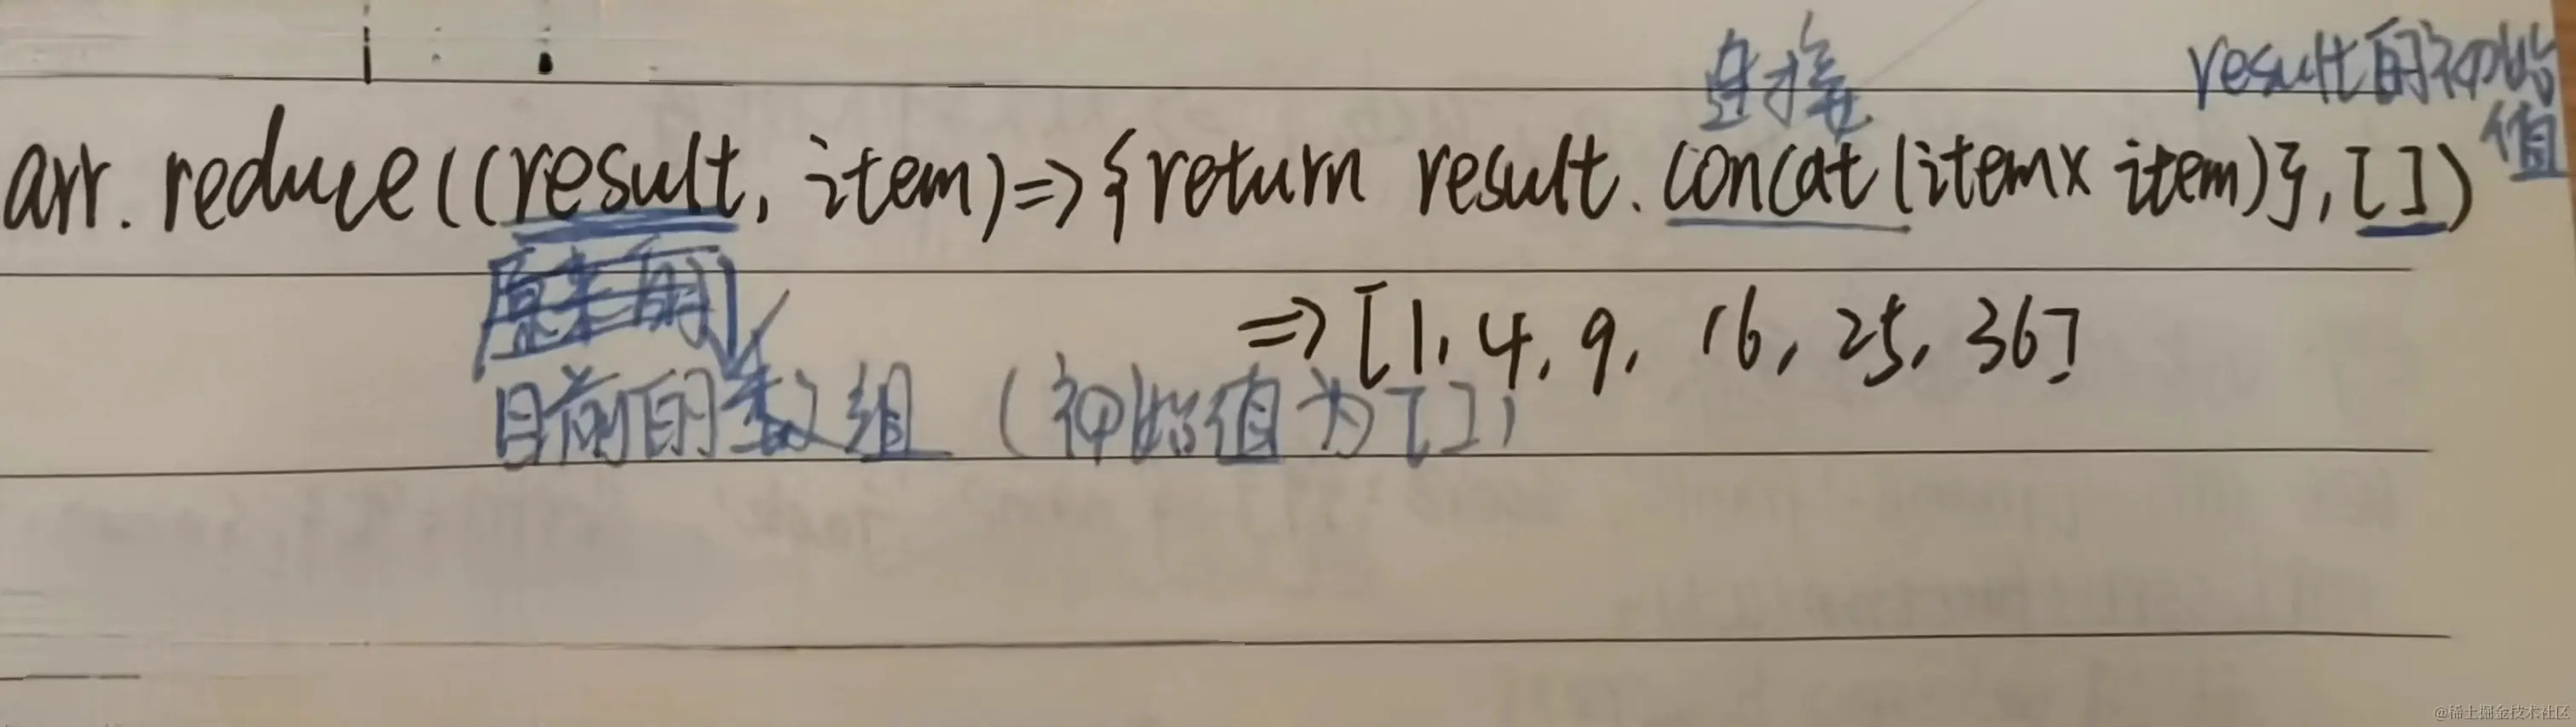 直接 result的初始
值
arr. reduce((result, item)=>{return result. concat(item x item)}, [])
原来的
=> [1, 4, 9, 16, 25, 36]
目前的数组 (初始值为[])
@稀土掘金技术社区